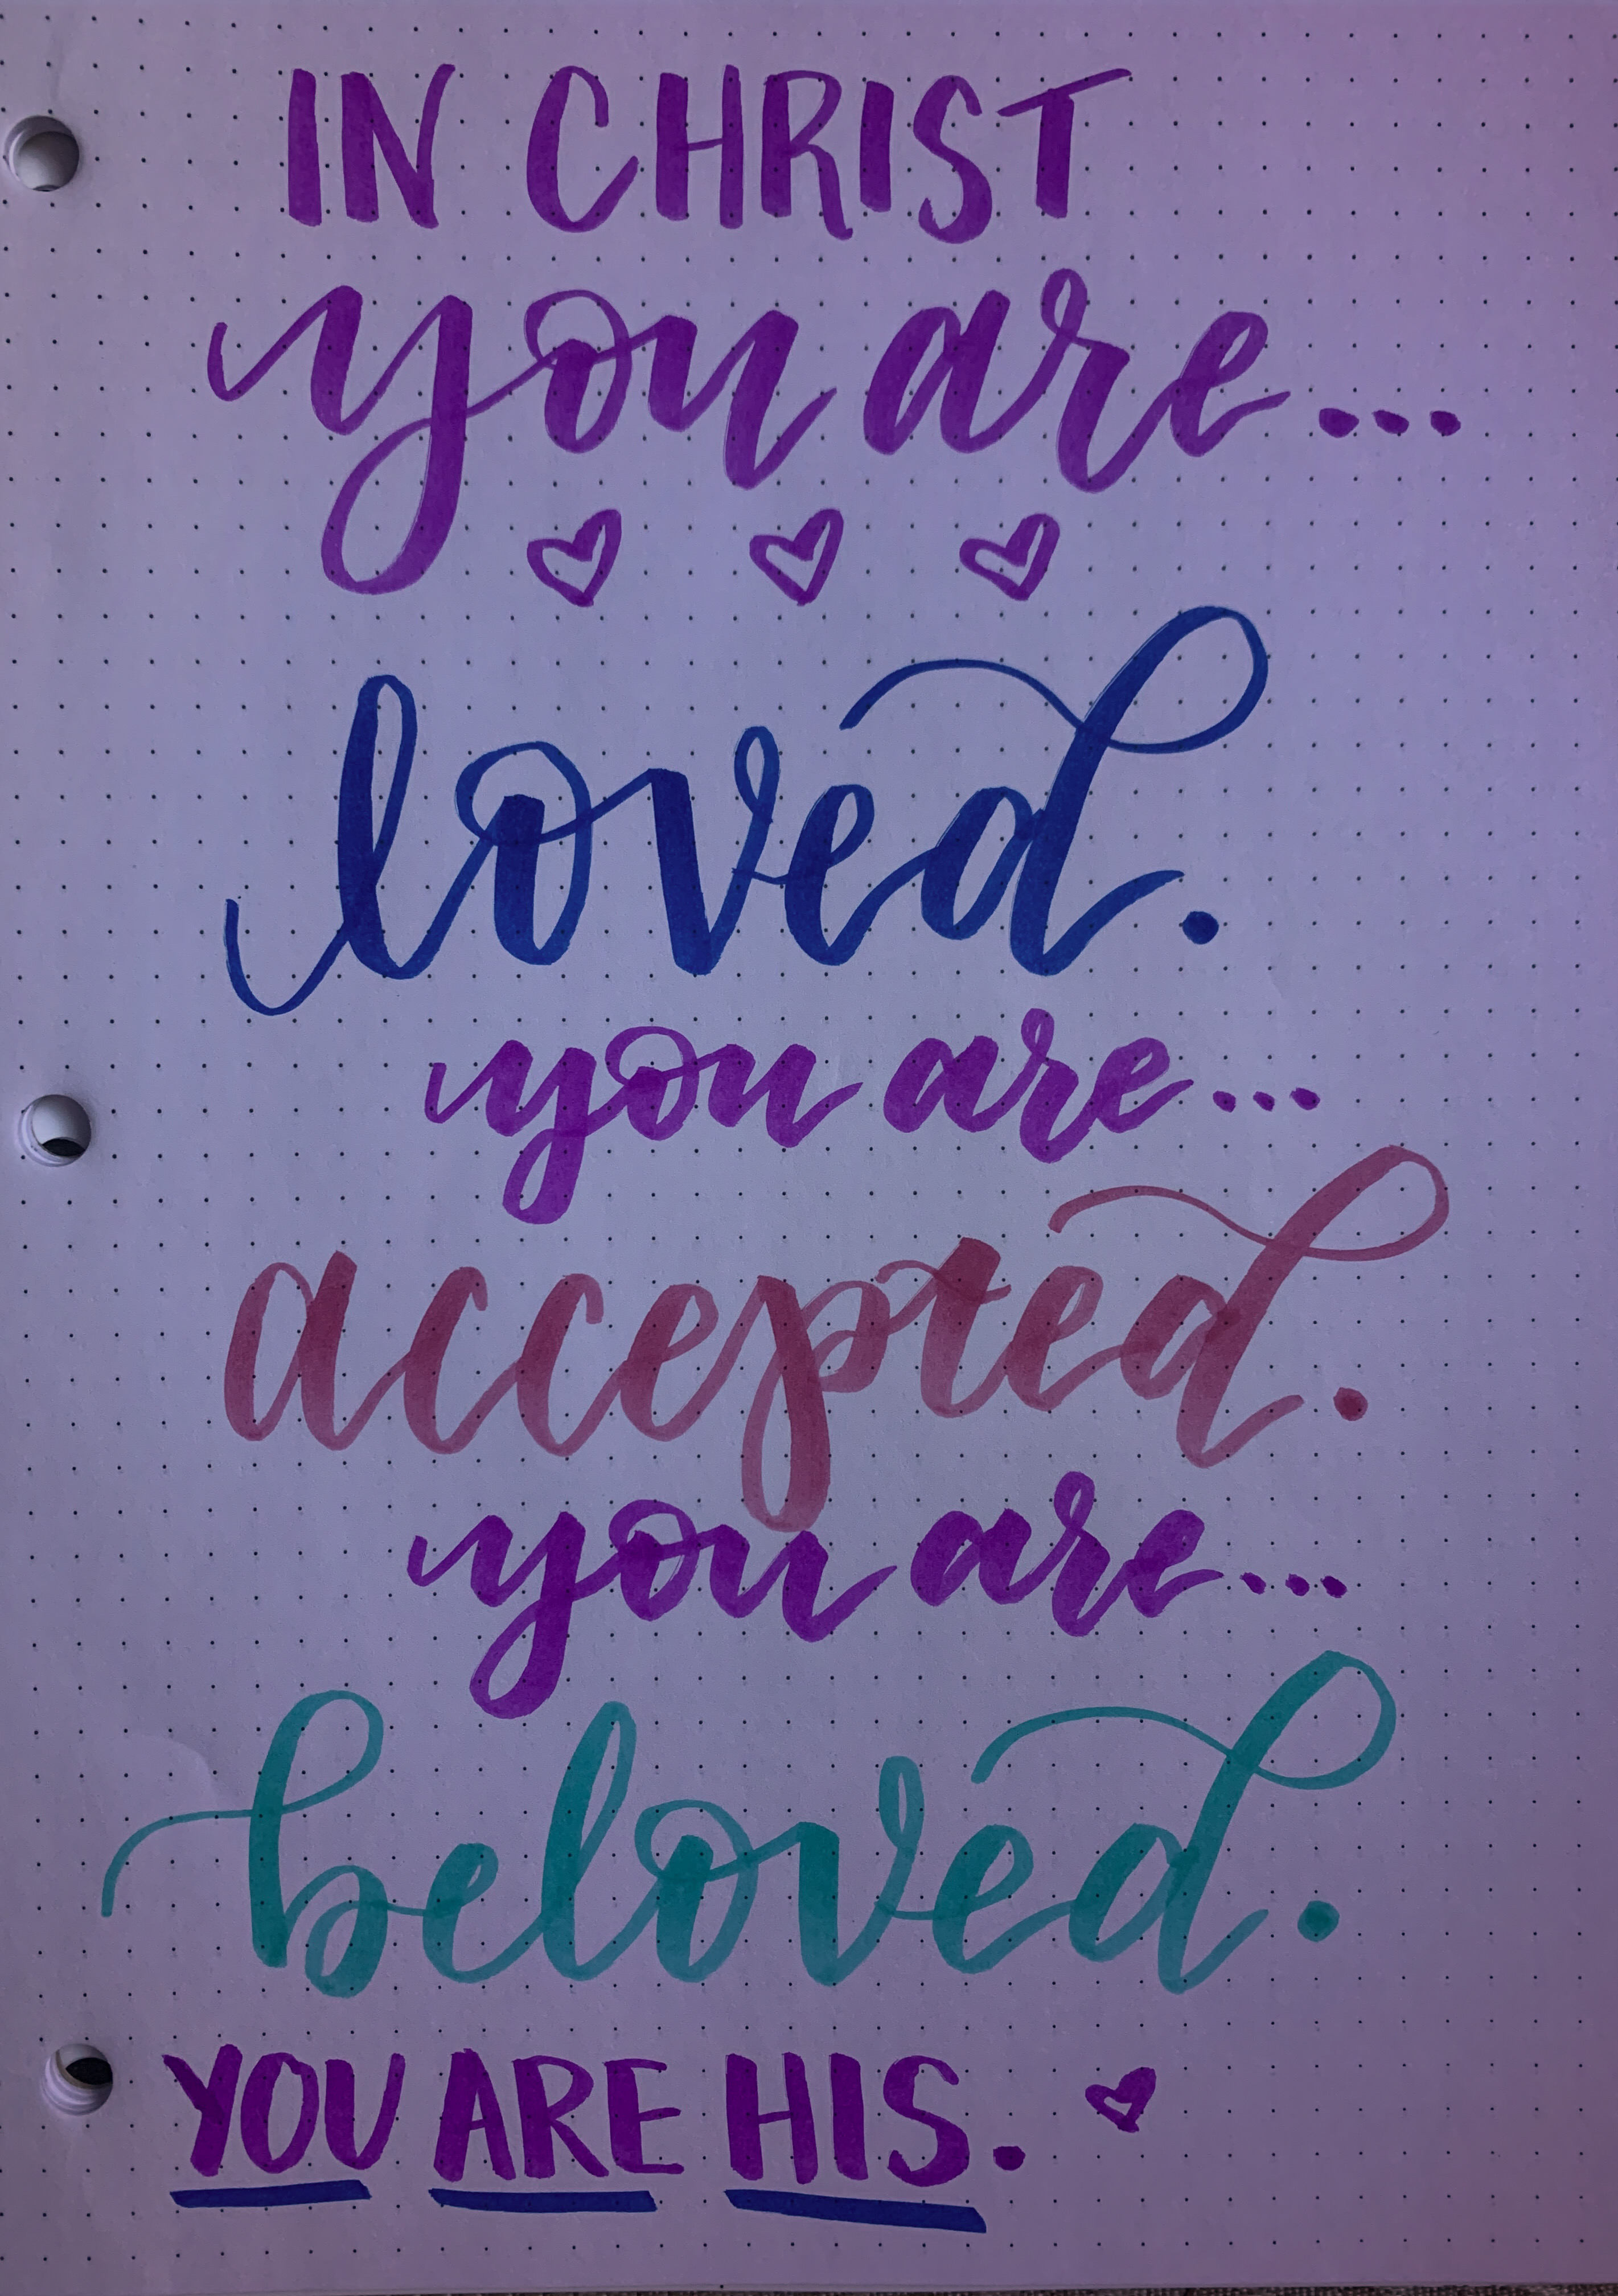 IN CHRIST
you are...
loved.
you are...
accepted.
you are...
beloved.
YOU ARE HIS.